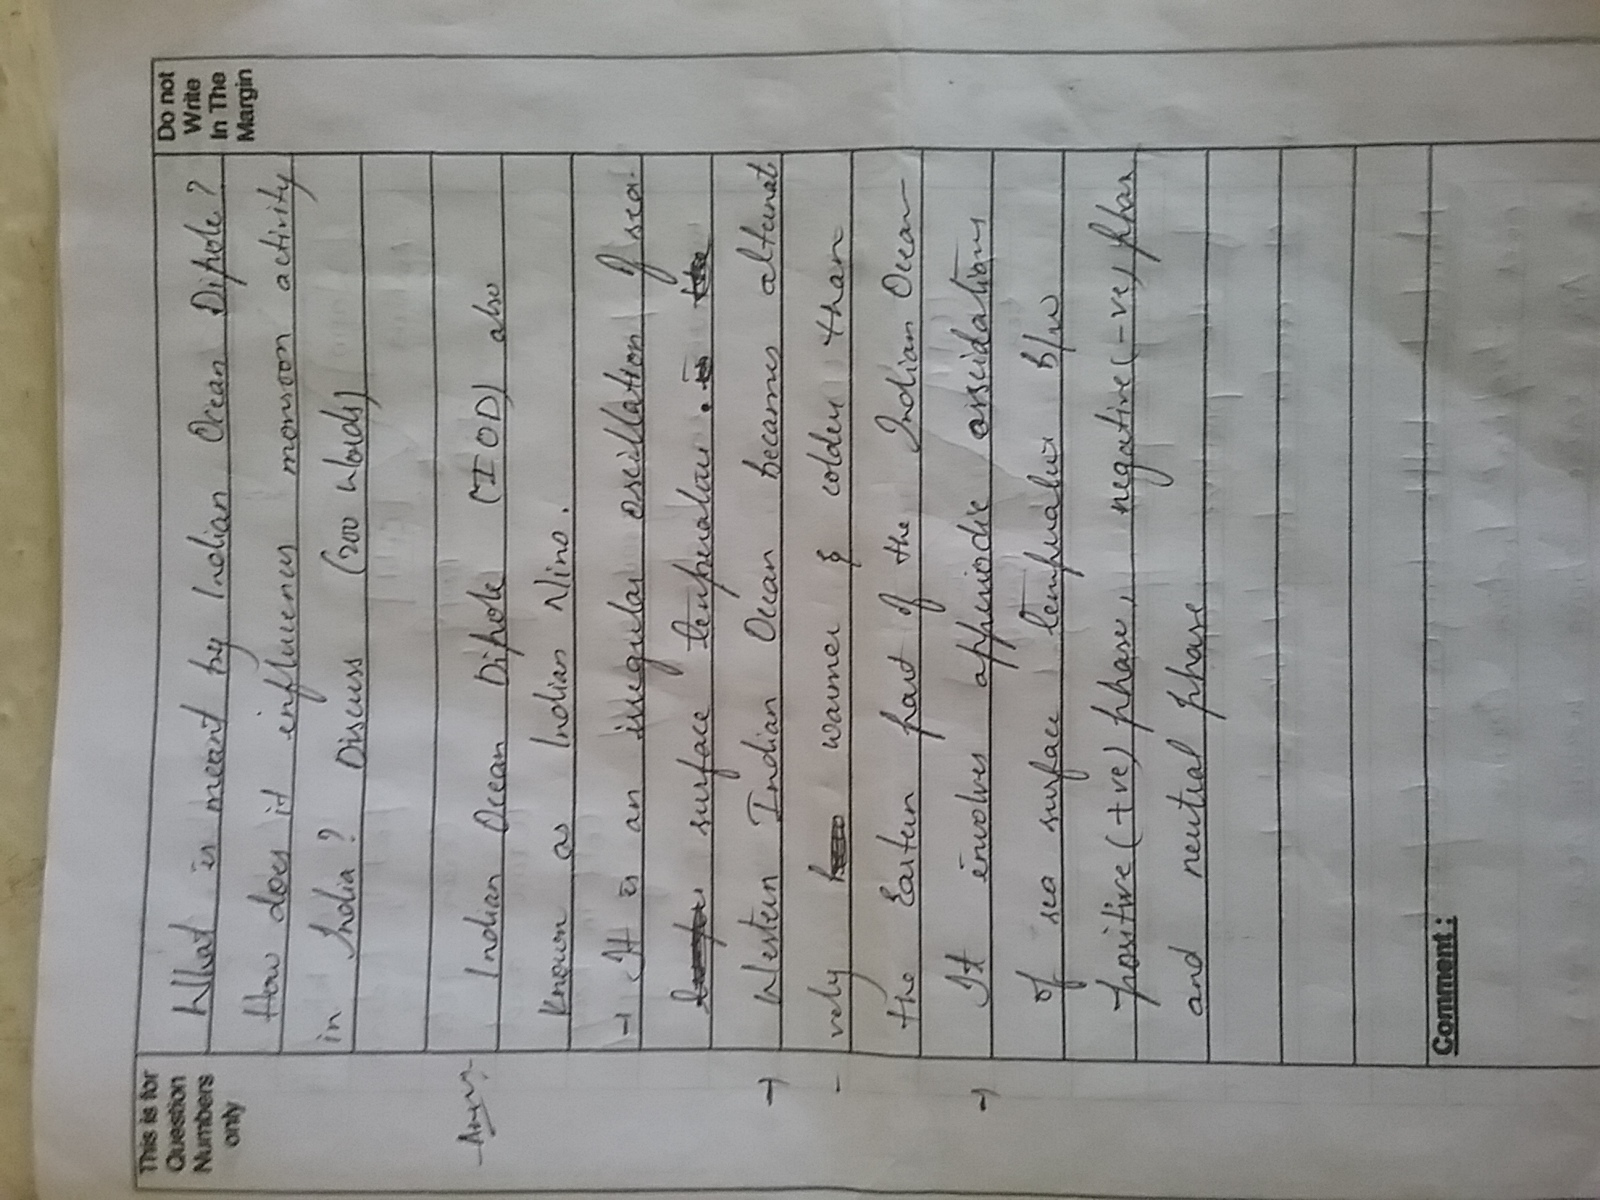 This is for
Question
Numbers
only
Do not
Write
In The
Margin
What is meant by Indian Ocean Dipole?
How does it influences monsoon activity
in India? Discuss (200 Words)
Ans:-
Indian Ocean Dipole (IOD) also
Known as Indian Nino.
→ It is an irregular oscillation of sea-
surface temperature.
→ Western Indian Ocean becames alternat
- vely warmer & colder than
the Eastern part of the Indian Ocean
→ It envolves apperiodic ossidations
of sea surface temperature B/w
positive (+ve) phase, negative (-ve) phas
and neutral phase
Comment :